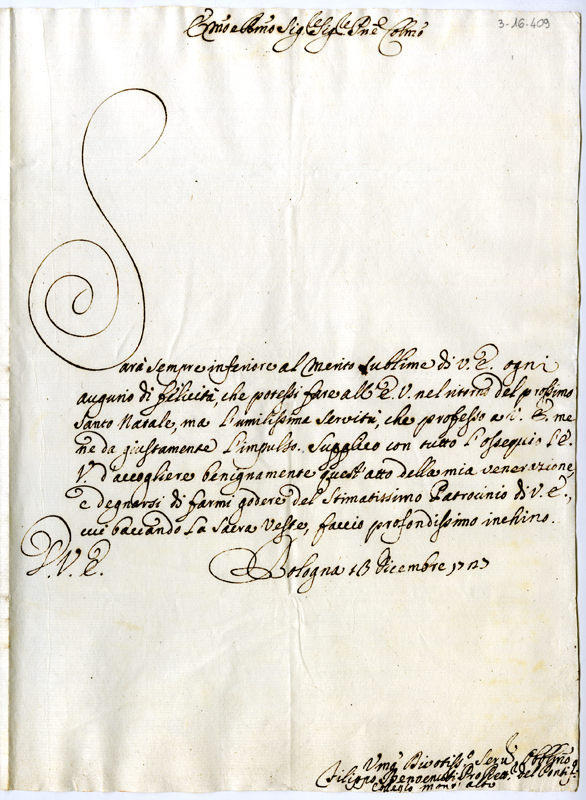 3-16-409
Emo e Rmo Sig.re Sig.re Pne Colmo
Sarà sempre inferiore al merito sublime di V. E. ogni
augurio di felicità, che potessi fare all' E. V. nel ritorno del prossimo
Santo Natale, ma l'umilissima servitù, che professo a V. E. me
ne da giustamente l'impulso. Supplico con tutto l'ossequio l'E.
V. d'accogliere benignamente quest'atto della mia venerazione,
e degnarsi di farmi godere del Stimatissimo Patrocinio di V. E.,
cui bacciando la Sacra Veste, faccio profondissimo inchino.
D. V. E.
Bologna 13 Dicembre 1727
Umo Divotiss.o Serv.e Obblmo
Filippo del Ponti.o
Collegio Mont'alto